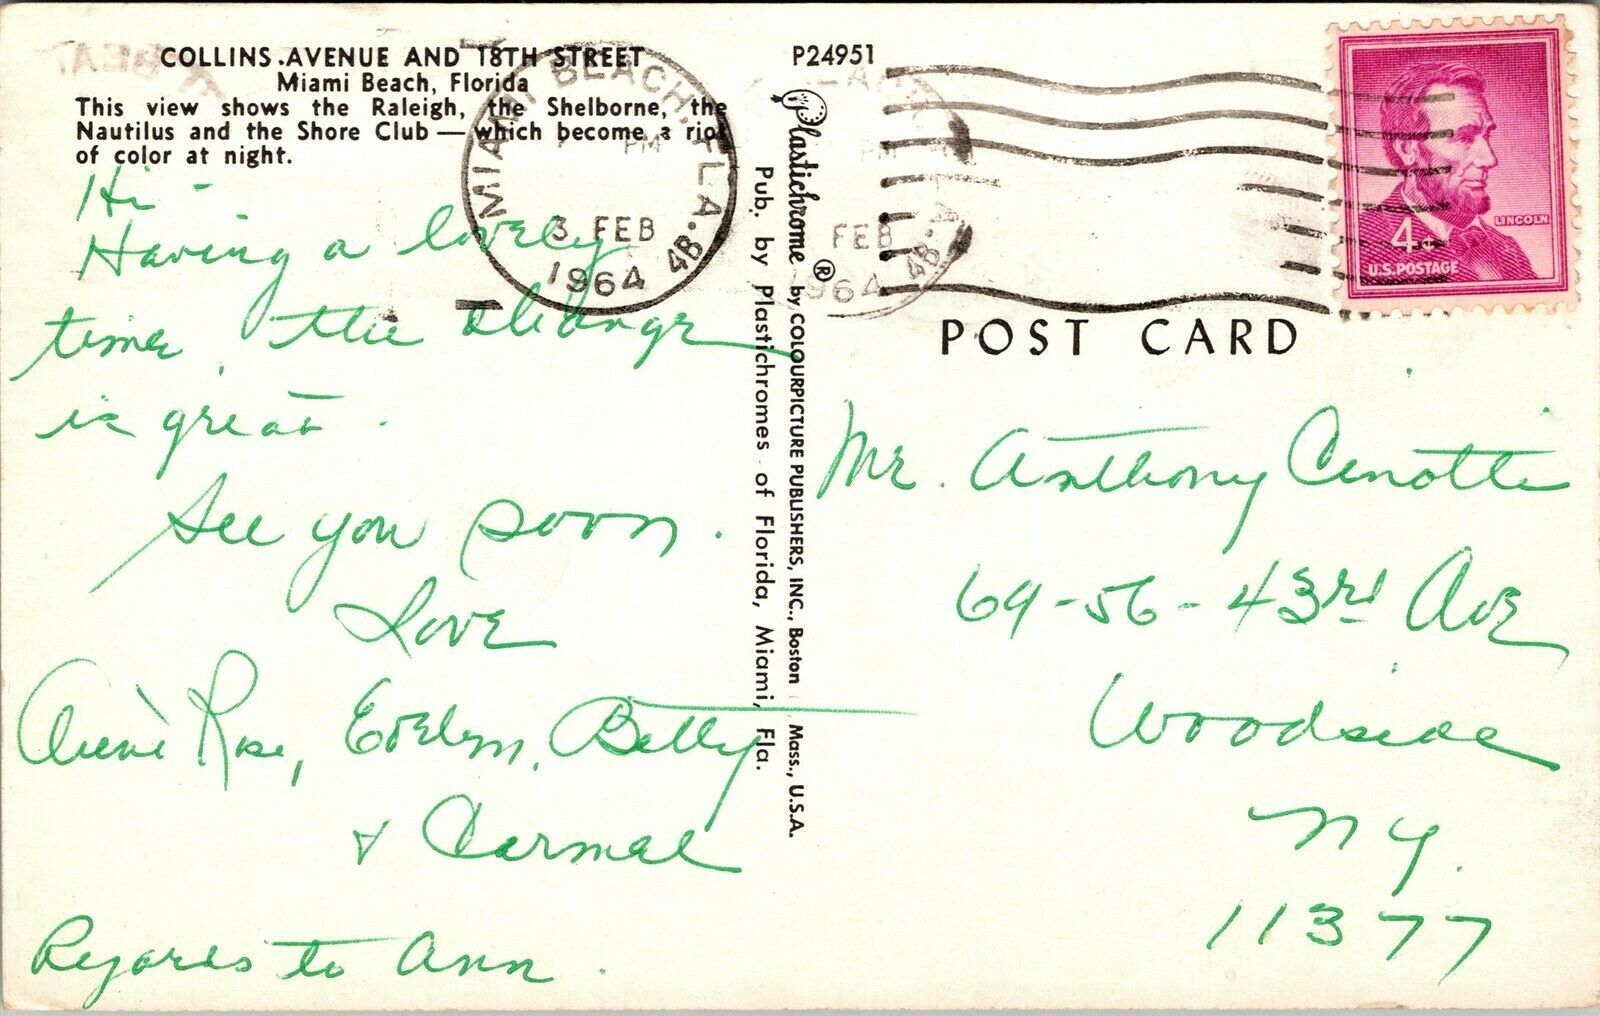 COLLINS AVENUE AND 18TH STREET
Miami Beach, Florida
This view shows the Raleigh, the Shelborne, the
Nautilus and the Shore Club — which become a riot
of color at night.
Hi -
Having a lovely
time, the change
is great.
See you soon.
Love
Rose, Evelyn, Betty
& Carmel
Regards to Ann.
MIAMI BEACH, FLA.
PM
3 FEB
1964
4B
P24951
Plastichrome ® by COLOURPICTURE PUBLISHERS, INC., Boston Mass., U.S.A.
Pub. by Plastichromes of Florida, Miami, Fla.
PM
FEB
964
4B
LINCOLN
4¢
U.S. POSTAGE
POST CARD
Mr. Anthony Cenotti
69-56-43rd Ave
Woodside
NY.
11377